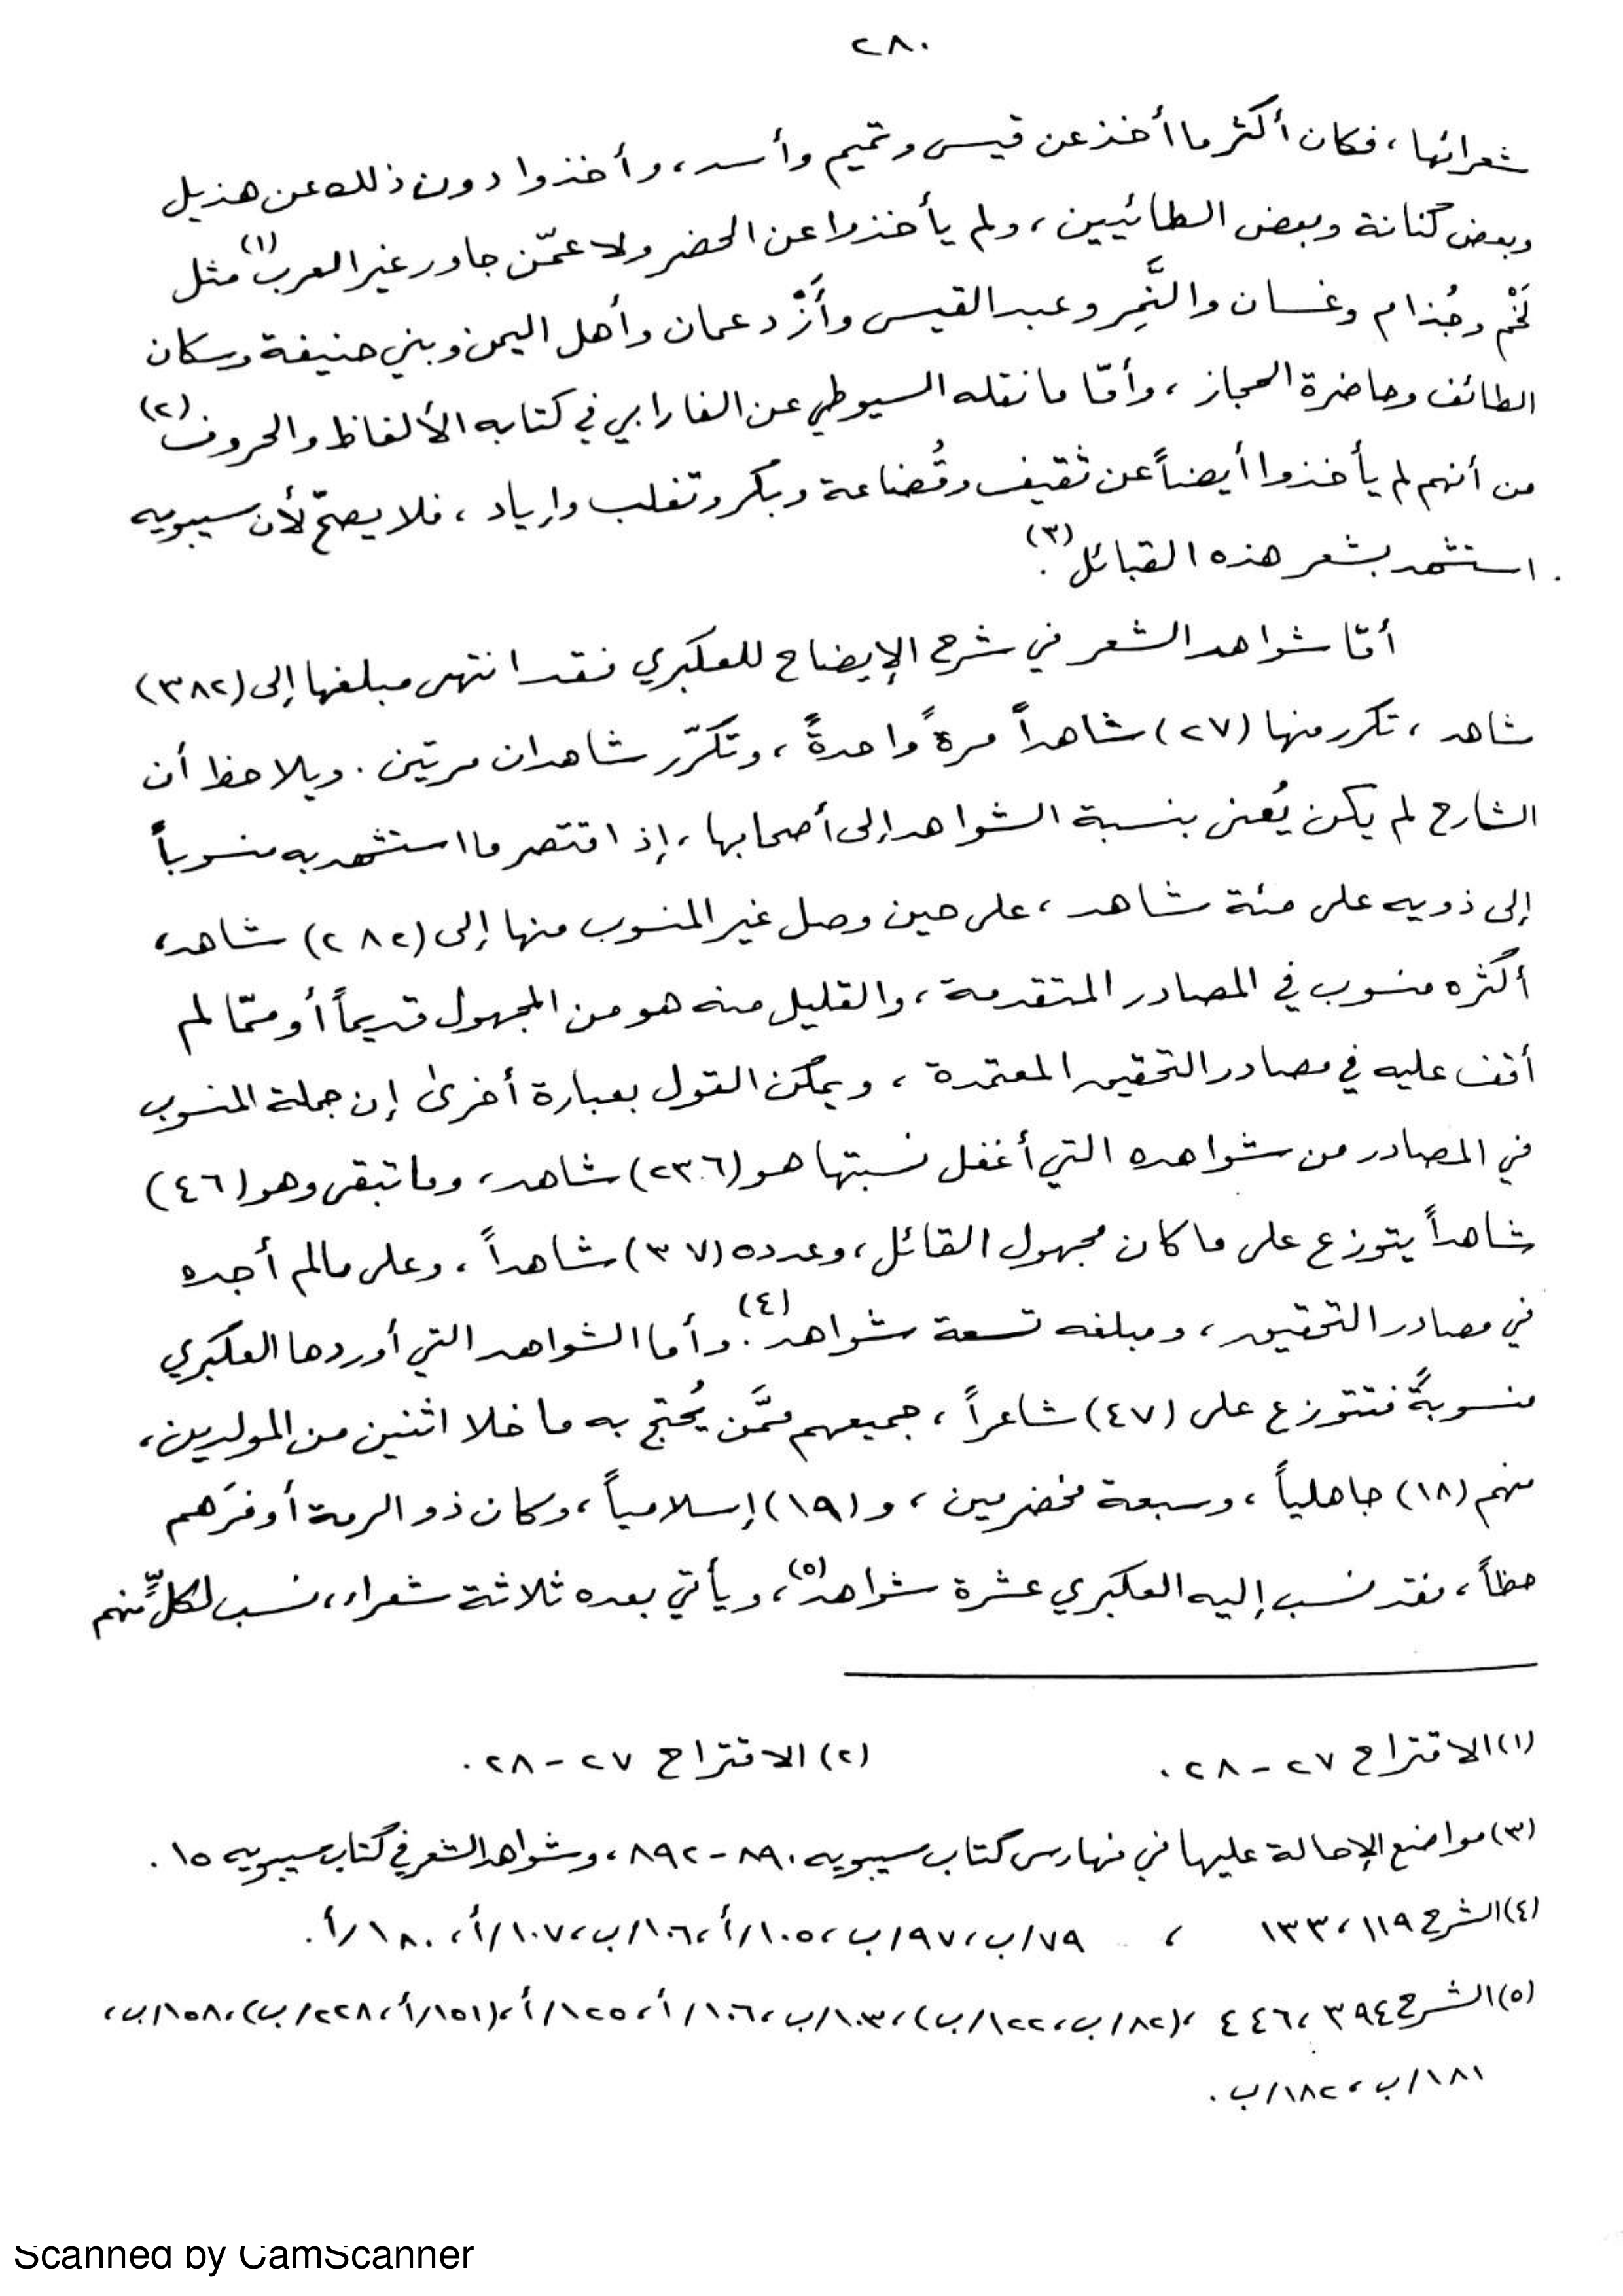 ٢٨٠
شعرائها، فكان أكثر ما أخذ عن قيس وتميم وأسد، وأخذوا دون ذلك عن هذيل
وبعض كنانة وبعض الطائيين، ولم يأخذوا عن الحضر ولا عمّن جاور غير العرب(١) مثل
لَخْم وجُذام وغسان والنَّمِر وعبد القيس وأَزْد عمان وأهل اليمن وبني حنيفة وسكان
الطائف وحاضرة الحجاز، وأمّا ما نقله السيوطي عن الفارابي في كتابه الألفاظ والحروف(٢)
من أنهم لم يأخذوا أيضاً عن ثقيف وقُضاعة وبكر وتغلب وإياد، فلا يصحّ لأن سيبويه
استشهد بشعر هذه القبائل(٣).
أمّا شواهد الشعر في شرح الإيضاح للعكبري فقد انتهى مبلغها إلى (٣٨٢)
شاهد، تكرر منها (٢٧) شاهداً مرةً واحدةً، وتكرّر شاهدان مرتين. ويلاحظ أن
الشارح لم يكن يُعنى بنسبة الشواهد إلى أصحابها، إذ اقتصر ما استشهد به منسوباً
إلى ذويه على مئة شاهد، على حين وصل غير المنسوب منها إلى (٢٨٢) شاهد،
أكثره منسوب في المصادر المتقدمة، والقليل منه هو من المجهول قديماً أو ممّا لم
أقف عليه في مصادر التحقيق المعتمدة، ويمكن القول بعبارة أخرى إن جملة المنسوب
في المصادر من شواهده التي أغفل نسبتها هو (٢٣٦) شاهد، وما تبقى وهو (٤٦)
شاهداً يتوزع على ما كان مجهول القائل، وعدده (٣٧) شاهداً، وعلى مالم أجده
في مصادر التحقيق، ومبلغه تسعة شواهد(٤). وأما الشواهد التي أوردها العكبري
منسوبةً فتتوزع على (٤٧) شاعراً، جميعهم ممَّن يُحتج به ما خلا اثنين من المولدين،
منهم (١٨) جاهلياً، وسبعة مخضرمين، و (١٩) إسلامياً، وكان ذو الرمة أوفرَهم
حظاً، فقد نسب إليه العكبري عشرة شواهد(٥)، ويأتي بعده ثلاثة شعراء، نسب لكلٍّ منهم
(١) الاقتراح ٢٧ - ٢٨. (٢) الاقتراح ٢٧ - ٢٨.
(٣) مواضع الإحالة عليها في فهارس كتاب سيبويه ٨٩٠ - ٨٩٢، وشواهد الشعر في كتاب سيبويه ١٥.
(٤) الشرح ١١٩، ١٣٣ ، ٧٩/ب، ٩٧/ب، ١٠٥/أ، ١٠٦/ب، ١٠٧/أ، ١٨٠/أ.
(٥) الشرح ٣٩٤، ٤٤٦ ، (٨٢/ب، ١٢٢/ب)، ١٠٣/ب، ١٠٦/أ، ١٢٥/أ، (١٥١/أ، ٢٢٨/ب)، ١٥٨/ب،
١٨١/ب، ١٨٢/ب.
Scanned by CamScanner